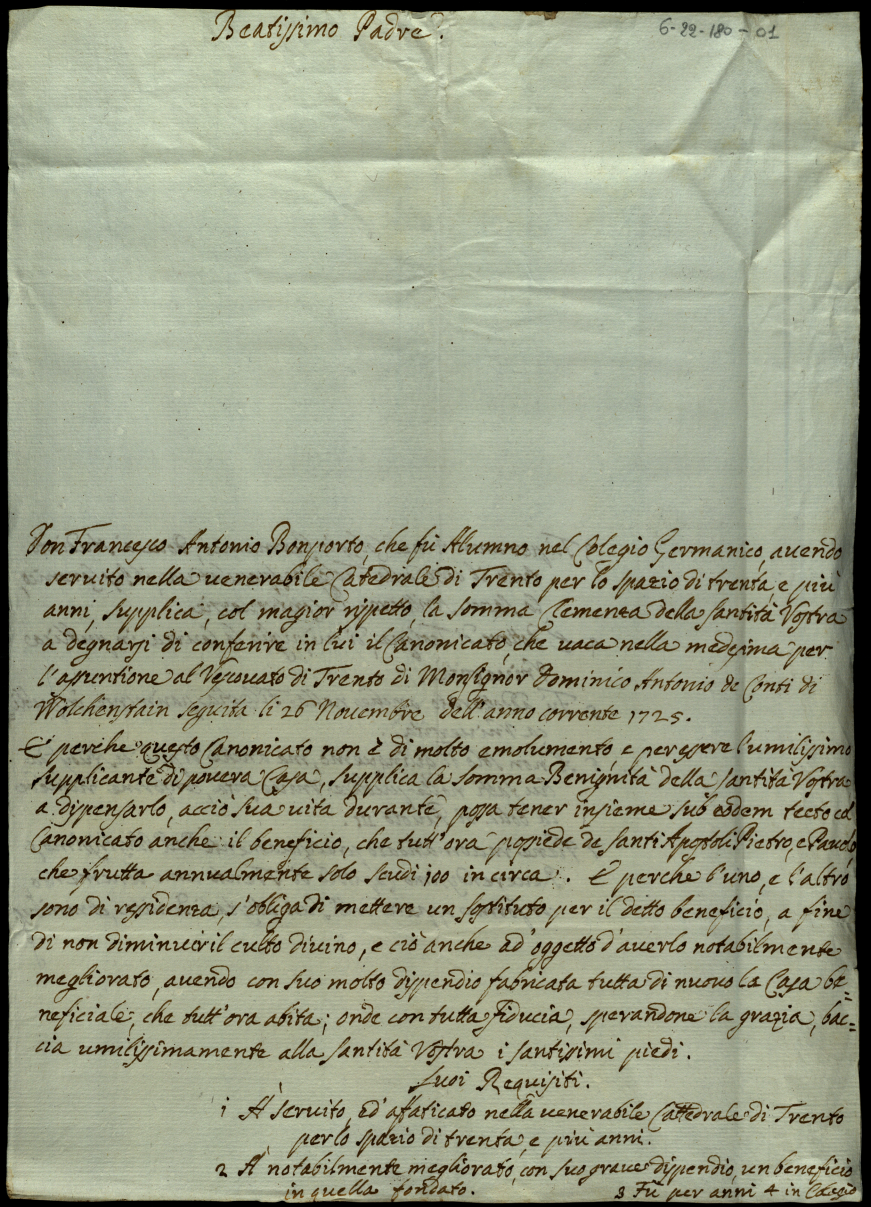 Beatissimo Padre.
6-22-180-01
Don Francesco Antonio Bonporto, che fù Alunno nel Colegio Germanico, avendo
servito nella venerabile Catedrale di Trento per lo spazio di trenta, e più
anni, supplica, col magior rispetto, la somma Clemenza della Santità Vostra
a degnarsi di conferire in lui il Canonicato, che vaca nella medesima per
l'assuntione al Vescovato di Trento di Monsignor Dominico Antonio de Conti di
Wolchenstain seguita li 26 Novembre dell'anno corrente 1725.
E perche questo Canonicato non è di molto emolumento, e per essere l'umilissimo
supplicante di povera Casa, supplica la somma Benignità della Santità Vostra
a dispensarlo, acciò sua vita durante, possa tener insieme sub eodem tecto col
Canonicato anche il beneficio, che tutt'ora possiede de Santi Apostoli Pietro, e Pauolo
che frutta annualmente solo scudi 100 in circa. E perche l'uno, e l'altro
sono di residenza, s'obliga di mettere un sostituto per il detto beneficio, a fine
di non diminuir il culto divino, e ciò anche ad'oggetto d'averlo notabilmente
megliorato, avendo con suo molto dispendio fabricata tutta di nuovo la Casa be=
neficiale, che tutt'ora abita; onde con tutta fiducia, sperandone la grazia, bac=
cia umilissimamente alla Santità Vostra i santissimi piedi.
Suoi Requisiti.
1 À servito, ed'affaticato nella venerabile Cattedrale di Trento
per lo spazio di trenta, e più anni.
2 À notabilmente megliorato, con suo grave dispendio, un beneficio
in quella fondato. 3 Fù per anni 4 in Colegio